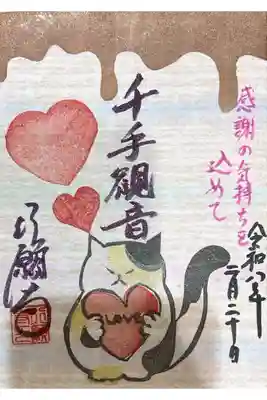 感謝の気持ちを
込めて
令和八年
二月二十日
千手観音
Love